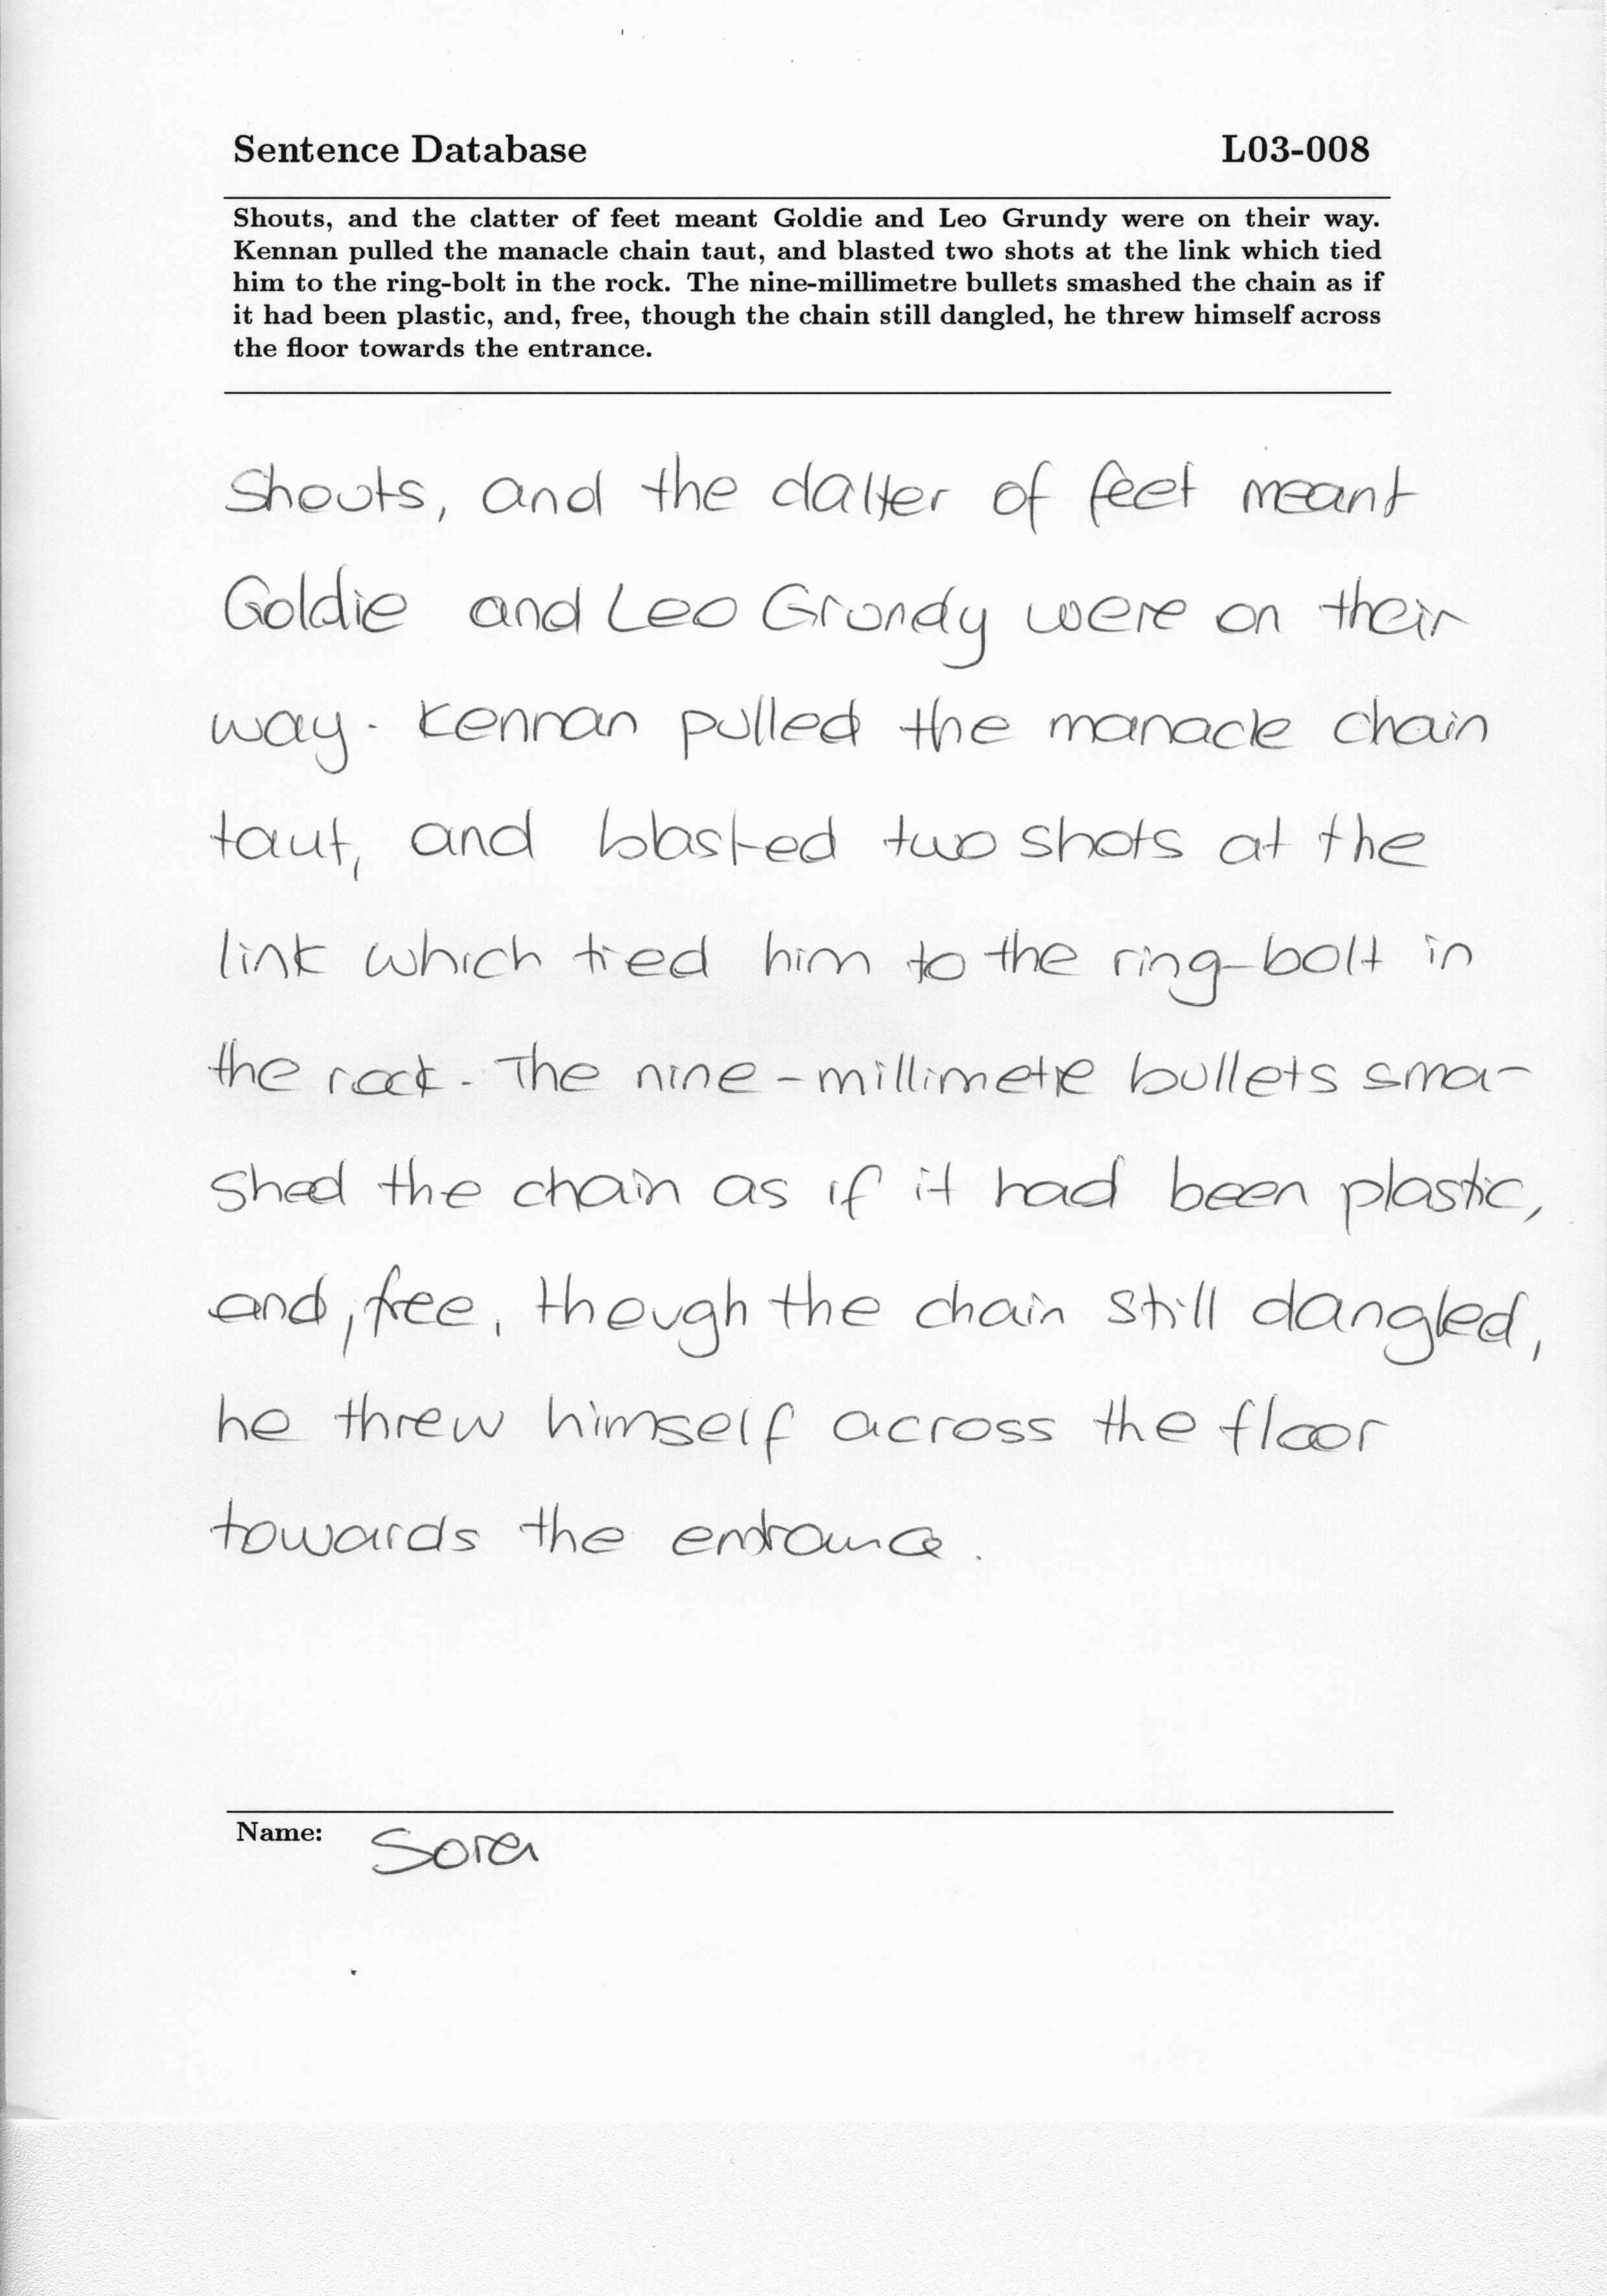 Sentence Database L03-008
Shouts, and the clatter of feet meant Goldie and Leo Grundy were on their way.
Kennan pulled the manacle chain taut, and blasted two shots at the link which tied
him to the ring-bolt in the rock. The nine-millimetre bullets smashed the chain as if
it had been plastic, and, free, though the chain still dangled, he threw himself across
the floor towards the entrance.
Shouts, and the clatter of feet meant
Goldie and Leo Grundy were on their
way. Kennan pulled the manacle chain
taut, and blasted two shots at the
link which tied him to the ring-bolt in
the rock. The nine-millimetre bullets sma-
shed the chain as if it had been plastic,
and, free, though the chain still dangled,
he threw himself across the floor
towards the entrance.
Name: